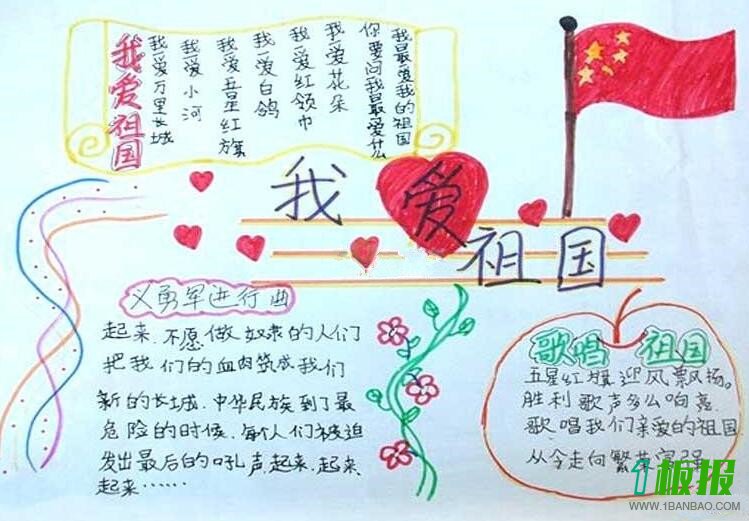 我爱祖国
我爱万里长城
我爱小河
我爱五星红旗
我爱白鸽
我爱红领巾
我爱花朵
你要问我最爱什么
我最爱我的祖国
我爱祖国
义勇军进行曲
起来,不愿做奴隶的人们
把我们的血肉筑成我们
新的长城,中华民族到了最
危险的时候,每个人们被迫
发出最后的吼声起来,起来,
起来……
歌唱 祖国
五星红旗迎风飘扬。
胜利歌声多么响亮
歌唱我们亲爱的祖国
从今走向繁荣富强
1板报
WWW.1BANBAO.COM